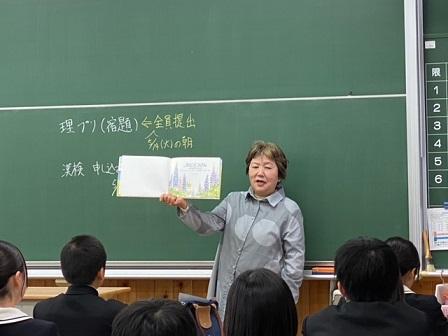 理プリ(宿題)⇐全員提出
(火)の朝
漢検 申し込
限
1
2
3
4
5
6